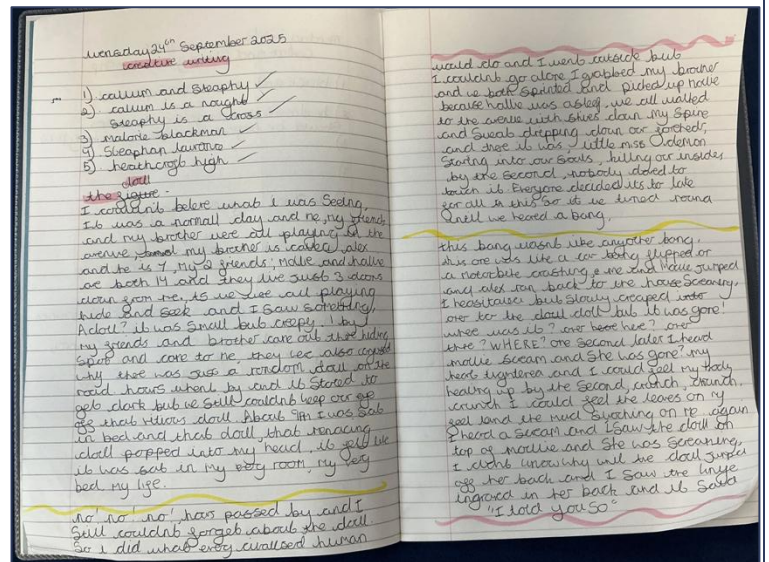 wensday 24th September 2025
creative writing
1) callum and Steaphy
2) callum is a nought
Steaphy is a cross
3) malorie blackman
4) Steaphan laurence
5) heathcroft high
doll
the figure.
I couldnt belere what i was Seeing,
It was a normall day and me, my friends
and my brother were all playing in the
avenue, my brother is called, alex
and he is 7, My 2 friends; Mollie and hallie
are both 14 and they live Just 3 doors
down from me, as we were all playing
hide and seek and I saw something,
A doll? it was small but creepy.
my friends and brother came out there hiding
Spot and came to me, they were also
why there was Just a random doll on the
road hours whent by and it Started to
get dark but we Still couldnt keep our eye
off that doll. About 9PM I was Sat
in bed and that doll, that menacing
doll popped into my head, it felt like
it was sat in my very room, my very
bed my life.
no! no! no!, hours passed by and I
Still couldnt forget about the doll.
So i did what every human
would do and I went outside but
I couldnt go alone I grabbed my brother
and we both Sprinted and picked up hallie
because hallie was asleep, we all walked
to the avenue with shivers down my Spine
and Sweat dripping down our foreheads,
and there it was, little miss demon
Staring into our Souls, killing our insides
by the Second, nobody dared to
touch it. Everyone decided its to late
for all of this So it we turned round
until we heard a bang.
this bang wasnt like anyother bang.
this one was like a car being flipped or
a motorbike crashing, me and Jumped
and alex ran back to the house Screaming,
I heasitated but Slowly creaped into
over to the doll but it was gone!
where was it? over here? over
there? WHERE? one Second later I heard
mollie Scream and She was gone? my
heart tightened and I could feel my body
heating up by the Second, crunch, crunch.
crunch I could feel the leaves on my
feet and the mud on me again
I heard a scream and I Saw the doll on
top of mollie and She was Screaming,
I didnt know why until the doll Jumped
off her back and I Saw the knife
ingraved in her back and it Said
"I told you So"